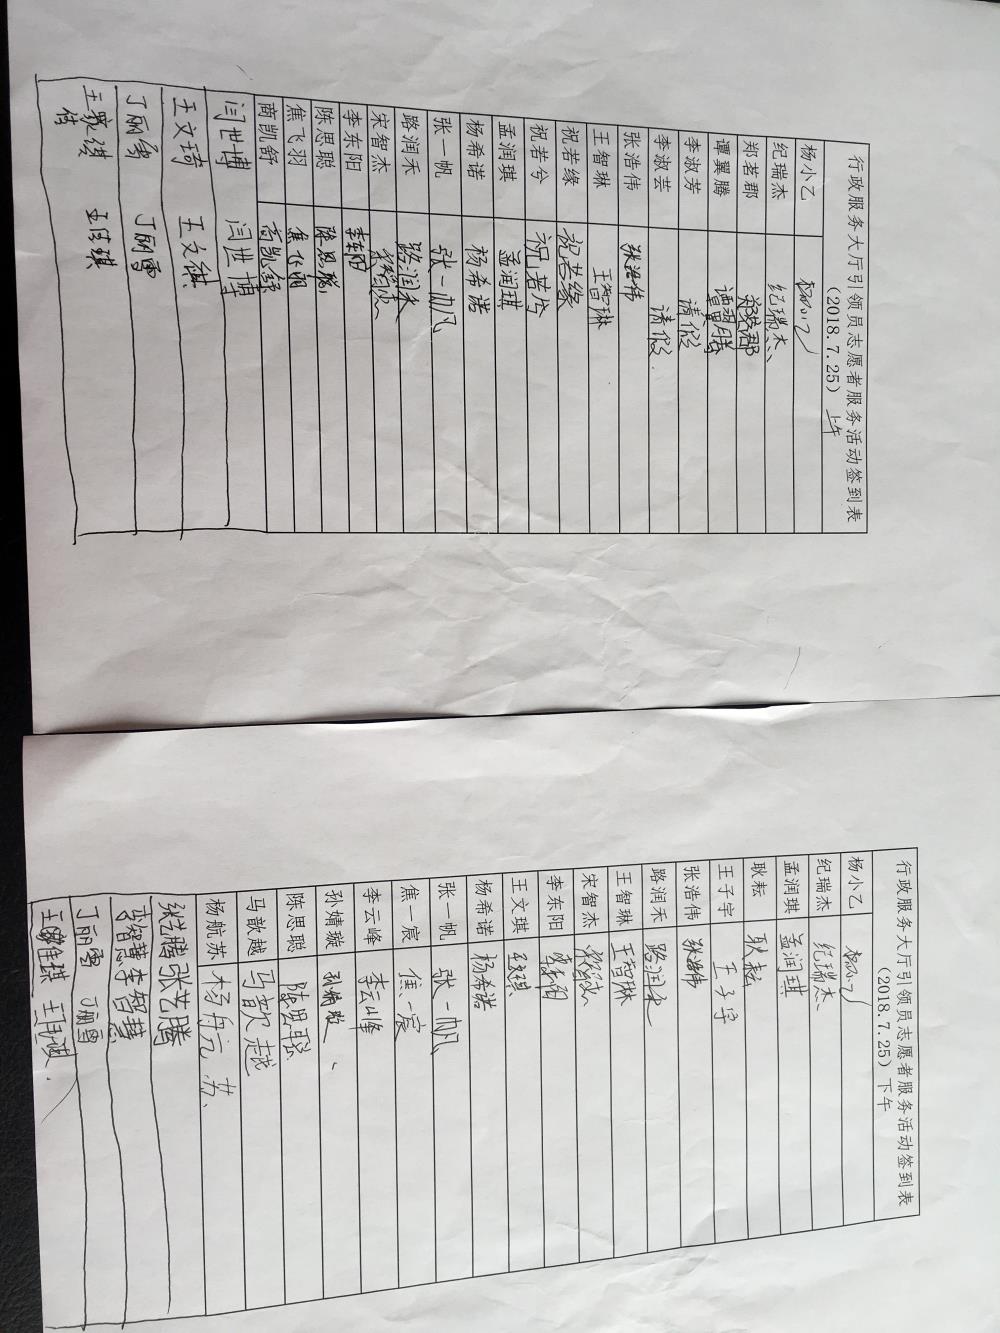 行政服务大厅引领员志愿者服务活动签到表
（2018.7.25） 上午
杨小乙 杨小乙
纪瑞杰 纪瑞杰
郑茗郡 郑茗郡
谭翼腾 谭翼腾
李淑芳 请假
李淑芸 请假
张浩伟 张浩伟
王智琳 王智琳
祝若缘 祝若缘
祝若今 祝若今
孟润琪 孟润琪
杨希诺 杨希诺
张一帆 张一帆
路润禾 路润禾
宋智杰 宋智杰
李东阳 李东阳
陈思聪 陈思聪
焦飞羽 焦飞羽
商凯舒 商凯舒
闫世博 闫世博
王文琦 王文
丁丽雪 丁丽雪
王佳琪
行政服务大厅引领员志愿者服务活动签到表
（2018.7.25）下午
杨小乙 杨小乙
纪瑞杰 纪瑞杰
孟润琪 孟润琪
耿耘 耿耘
王子宇 王子宇
张浩伟 张浩伟
路润禾 路润禾
王智琳 王智琳
宋智杰 宋智杰
李东阳 李东阳
王文琪 王文琪
杨希诺 杨希诺
张一帆 张一帆
焦一宸 焦一宸
李云峰 李云峰
孙婧璇 孙婧璇
陈思聪 陈思聪
马歆越 马歆越
杨航苏 杨航苏
张艺腾 张艺腾
李智慧 李智慧
丁丽雪 丁丽雪
王佳琪 王佳琪